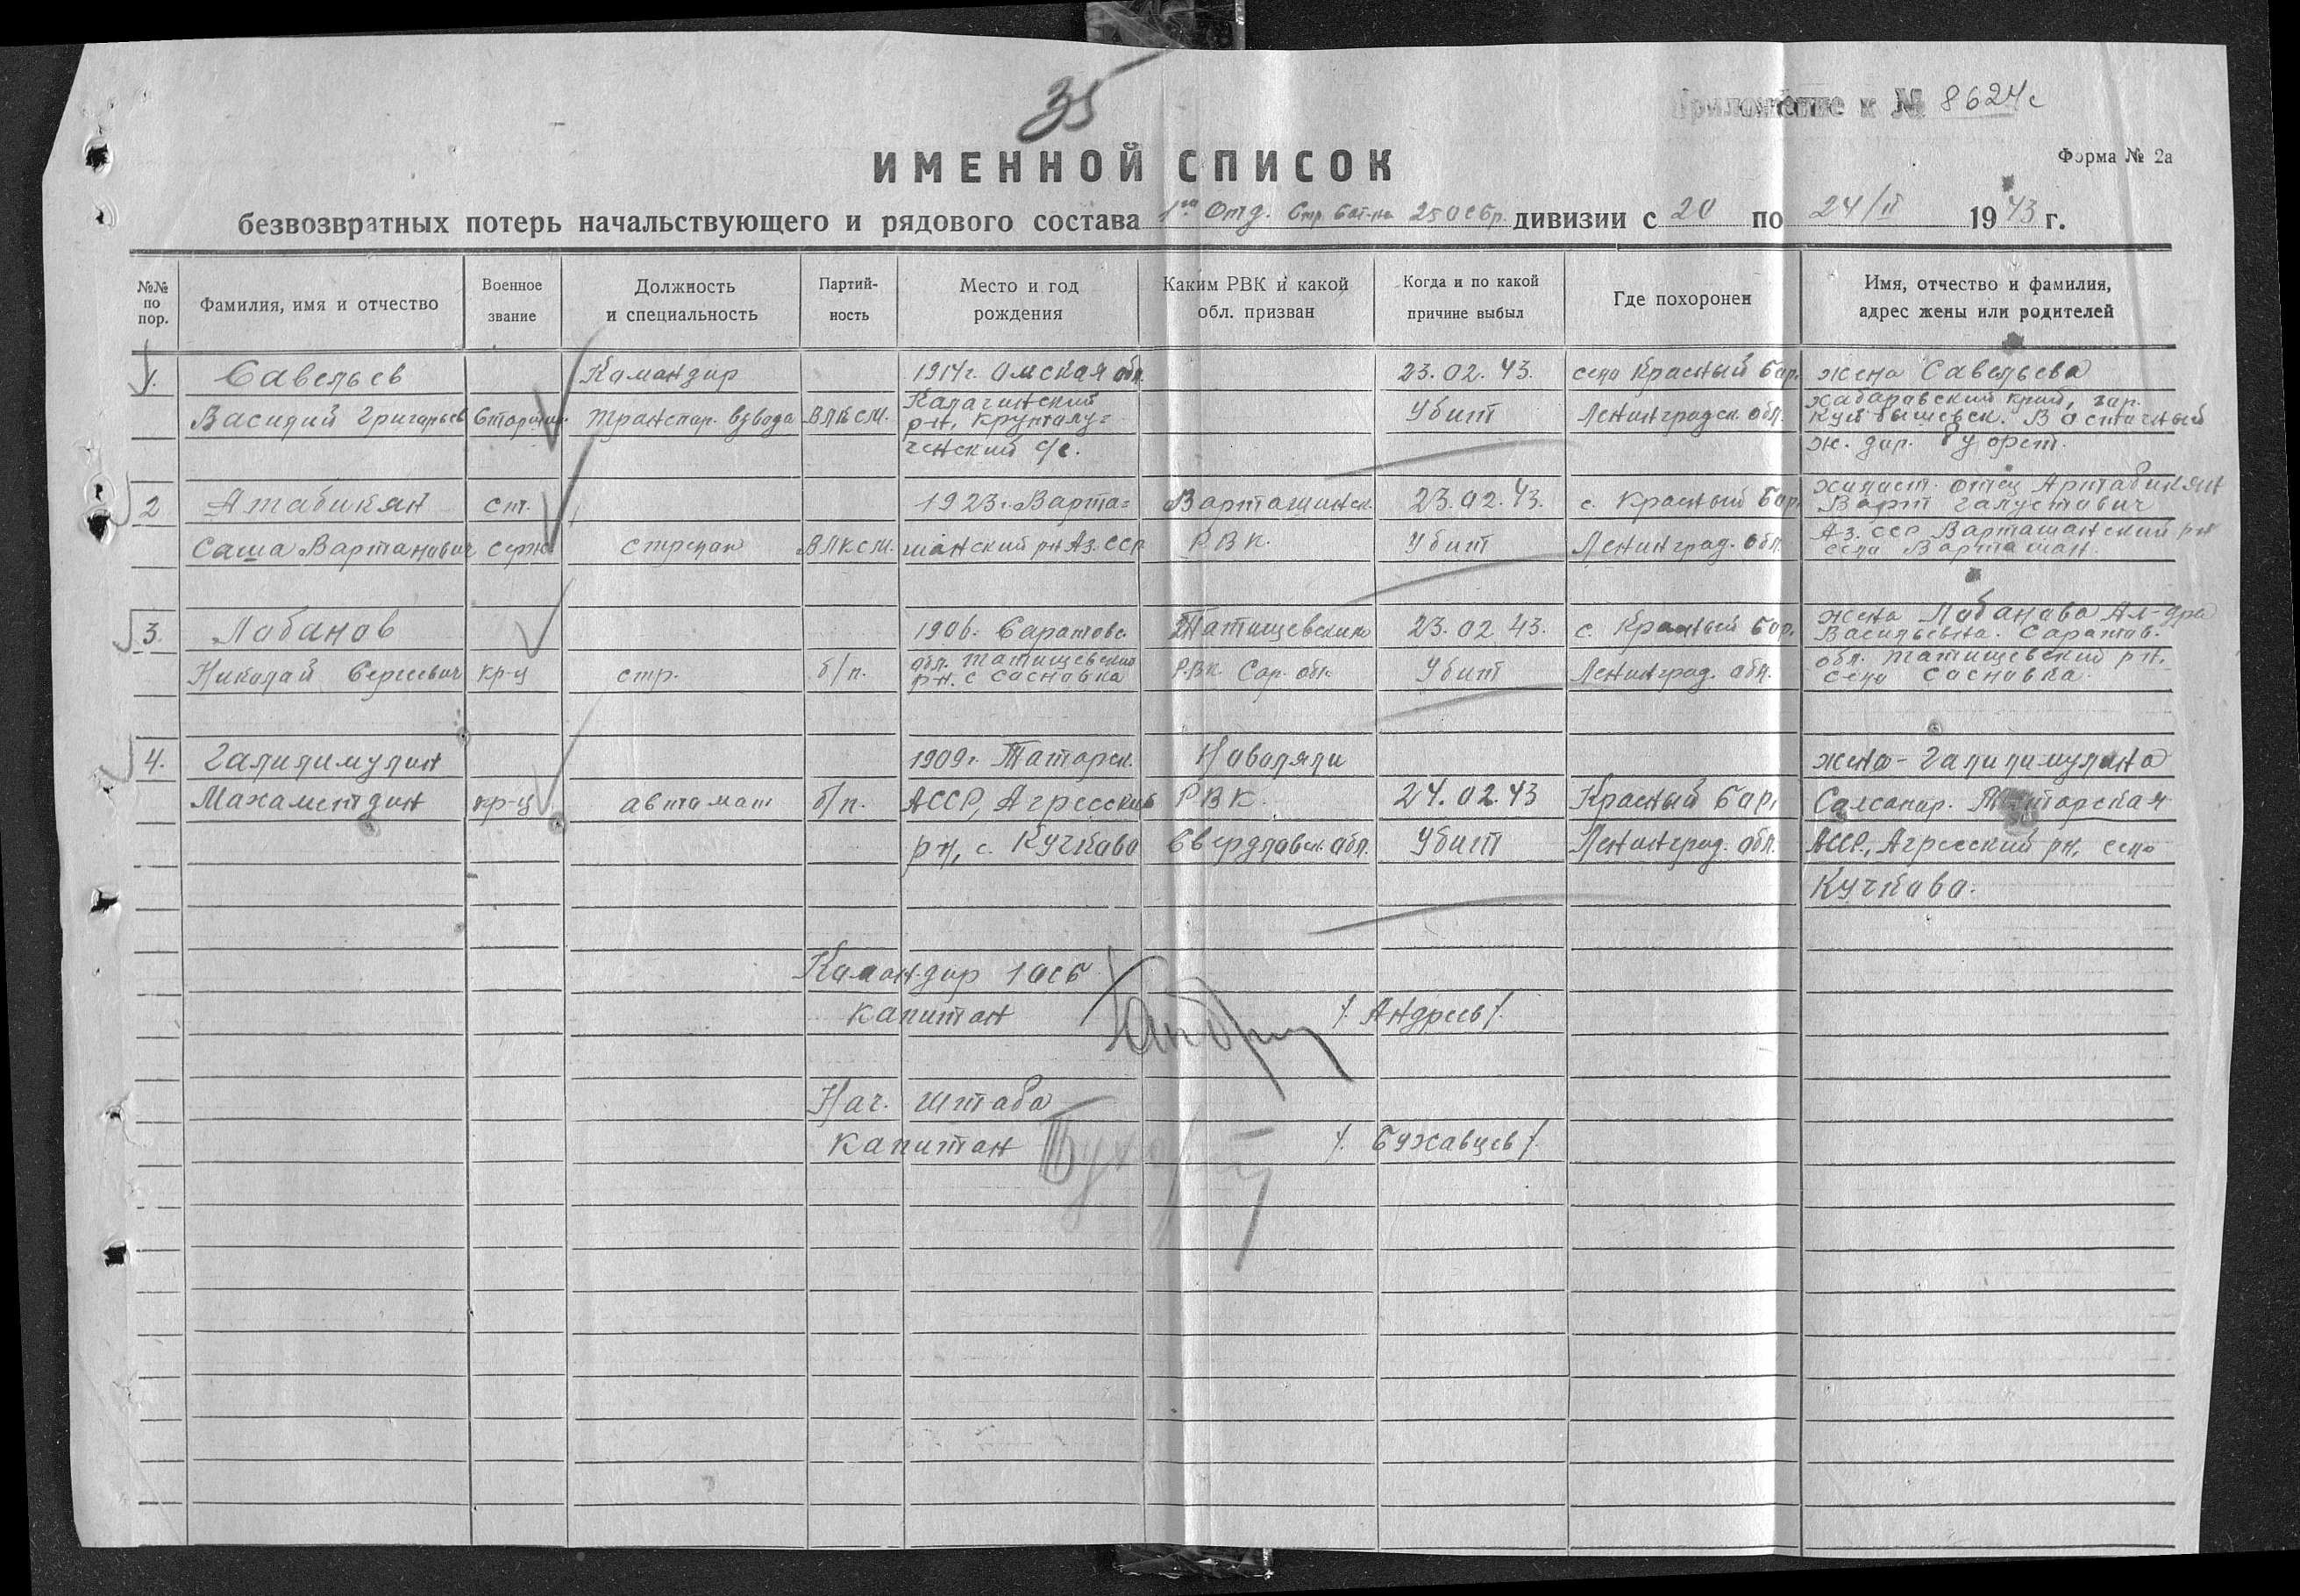 35
Приложение к № 8624с
Форма № 2а
ИМЕННОЙ СПИСОК
безвозвратных потерь начальствующего и рядового состава 1го Отд. Стр. бат-на 250сбр. дивизии с 20 по 24/II 1943 г.
№№ по пор.
Фамилия, имя и отчество
Военное звание
Должность и специальность
Партий-ность
Место и год рождения
Каким РВК и какой обл. призван
Когда и по какой причине выбыл
Где похоронен
Имя, отчество и фамилия, адрес жены или родителей
1. Савельев Командир 1914г. Омская обл. 23.02.43. село Красный Бор. жена Савельева
Василий Григорьев Старшин. транспор. взвода ВЛКСМ. Калачинский Убит Ленинградск. обл. Хабаровский край, гор.
р-н, Крутолу= Куйбышевск. Восточный
ченский с/с. ж. дор.
2 Атабикян ст. 1923г. Варта= Варташинск. 23.02.43. с. Красный Бор. отец Артабикян
Галустович
Саша Вартанович серж. стрелок ВЛКСМ. шанский рн Аз. ССР РВК. Убит Ленинград. обл. Аз. ССР Варташанский рн
село Варташан.
3. Лобанов 1906. Саратовс. Татищевским 23.02.43. с. Красный Бор. жена Лобанова Ал-дра
Васильевна. Саратов.
Николай Сергеевич кр-ц стр. б/п. обл. Татищевский РВК Сар. обл. Убит Ленинград. обл. обл. Татищевский р-н.
рн. с Сосновка село Сосновка.
4. Галилимулин 1909г. Татарск. Новоляли жена - Галилимулина
Махаментдин кр-ц автомат б/п. АССР, Агресский РВК. 24.02.43 Красный Бор, Татарская
рн, с. Кучково Свердловск обл. Убит Ленинград. обл. АССР., Агресский рн, село
Кучково.
Командир 1осб
капитан /. Андреев/.
Нач. штаба
капитан /. Буховцев/.